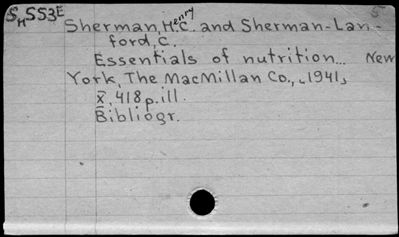 SH553E
5
Sherman, Henry C. and Sherman-Lan-
ford, C.
Essentials of nutrition... New
York, The MacMillan Co., 1941,
X, 418 p. ill.
Bibliogr.